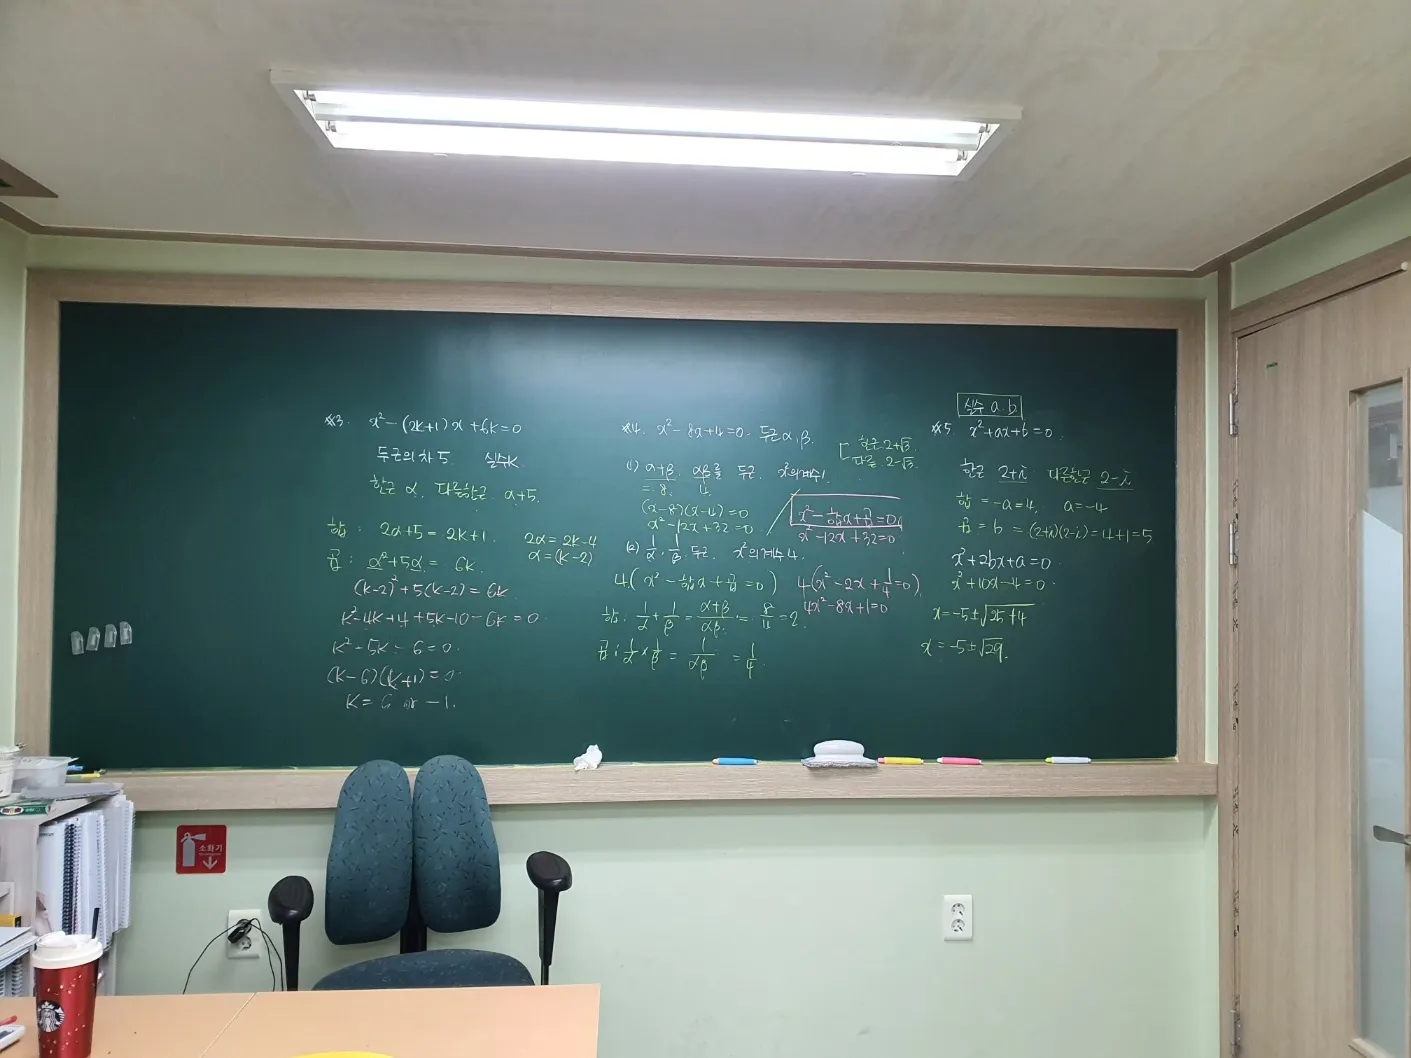 ※3. x²-(2k+1)x+6k=0
두근의 차 5. 실수k.
한근 α. 다른한근. α+5.
합: 2α+5=2k+1. 2α=2k-4
α=(k-2)
곱: α²+5α=6k.
(k-2)²+5(k-2)=6k.
k²-4k+4+5k-10-6k=0.
k²-5k-6=0.
(k-6)(k+1)=0.
k=6 or -1.
※4. x²-8x+4=0. 두근 α,β.
한근 2+√3.
다른 2-√3.
(1) α+β. αβ를 두근. x²의계수1.
=8. 4.
(x-8)(x-4)=0
x²-12x+32=0
x²-합x+곱=0
x²-12x+32=0
(2) 1/α, 1/β 두근. x²의계수4.
4(x²-합x+곱=0) 4(x²-2x+1/4=0)
4x²-8x+1=0
합: 1/α+1/β=α+β/αβ=8/4=2.
곱: 1/α×1/β=1/αβ=1/4
실수 a.b
※5. x²+ax+b=0.
한근 2+i 다른한근 2-i
합=-a=4. a=-4
곱=b=(2+i)(2-i)=4+1=5
x²+2bx+a=0
x²+10x-4=0.
x=-5±√25+4
x=-5±√29.
소화기